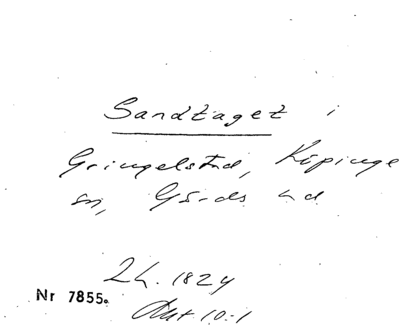 Sandtaget i
Gringelstad, Köpinge
sn, Gärds hd
Lh. 1824
Nr 7855.
Akt 10:1